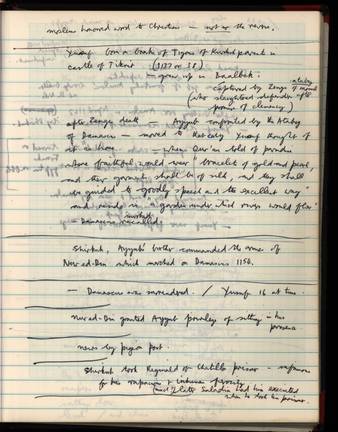 moslems honored word to Christians — not so the reverse.
Yusuf born on banks of Tigris of Kurdish parents in
castle of Tikrit (1137 or 38)
— grew up in Baalbek:
captured by Zenge
(who slaughtered defenders after
promise of clemency)
after Zenge's death — Ayyub
of Damascus — moved to that city Yusuf thought of
it as
where Qur'an told of paradise
where fruitful would wear "bracelets of gold and pearl,
and their garments shall be of silk, and they shall
be guided to goodly speech and the excellent way"
and reside in "a garden under which rivers would flow"
— Damascus
Shirkuh, Ayyub's brother commanded the army of
Nur-ed-Din which marched on Damascus 1154.
— Damascus was surrendered. / Yusuf 16 at time.
Nur-ed-Din granted Ayyub of sitting in his
presence
news by pigeon post.
Shirkuh took Reginald of Chatillon prisoner —
for his rapacious &
(and later Saladin had him executed
when he took him prisoner.